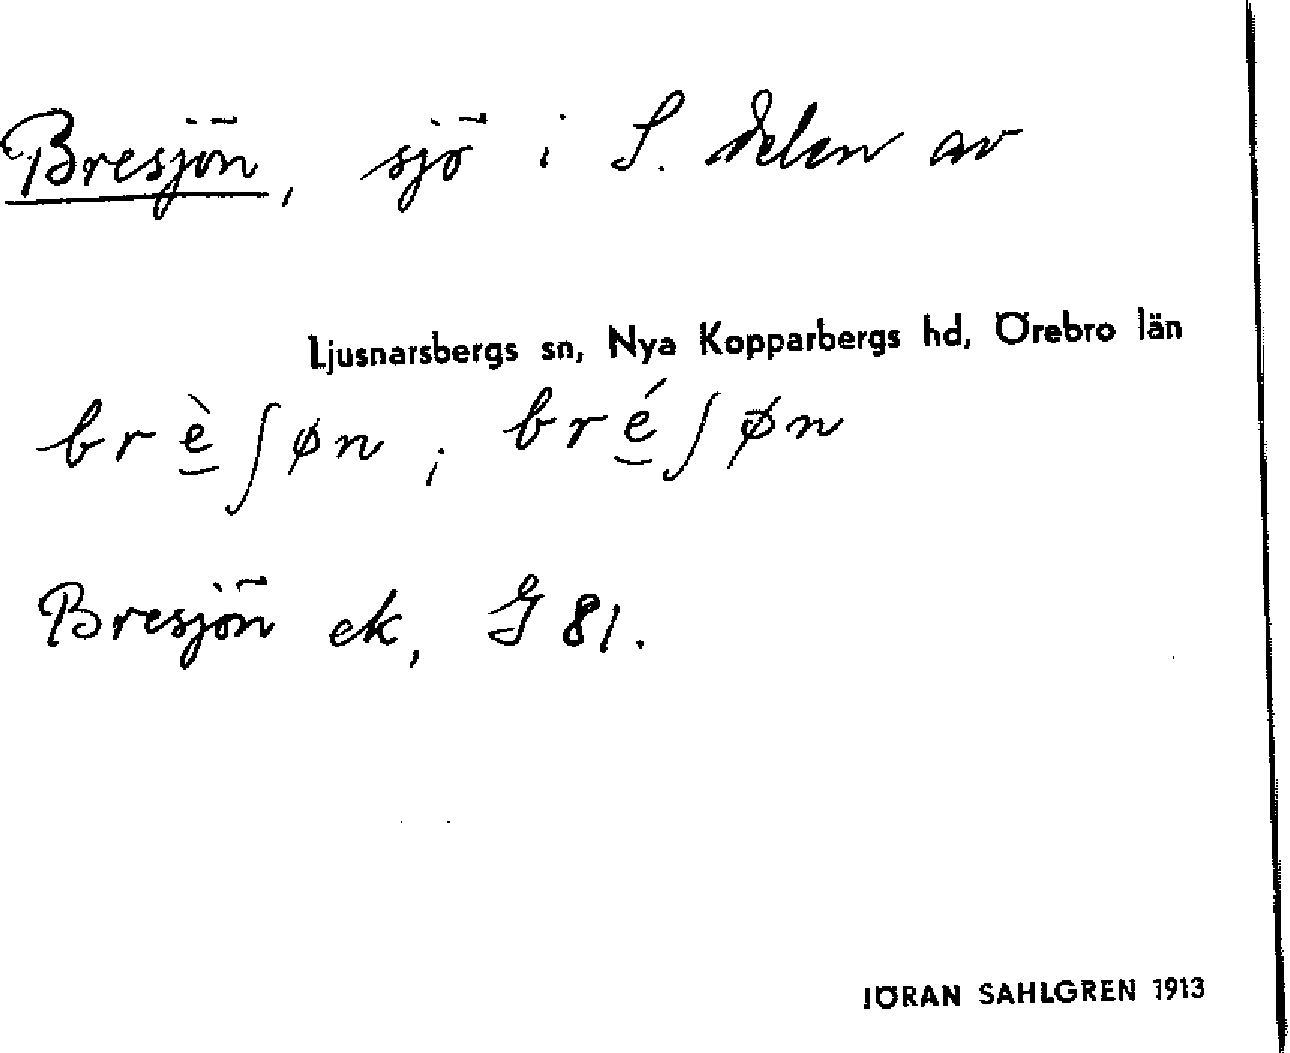 Bresjön, sjö i S. delen av
Ljusnarsbergs sn, Nya Kopparbergs hd, Örebro län
brè̱ʃøn; bré̱ʃøn
Bresjön ek, G 81.
JÖRAN SAHLGREN 1913